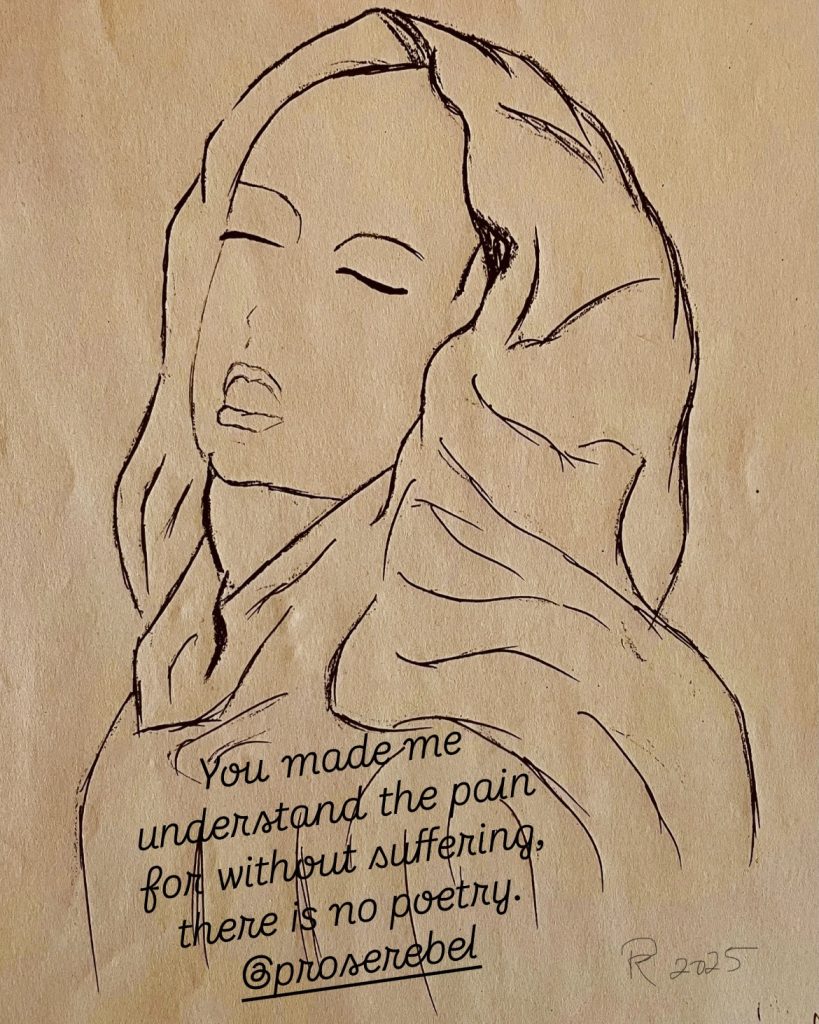 You made me
understand the pain
for without suffering,
there is no poetry.
@proserebel
PR 2025